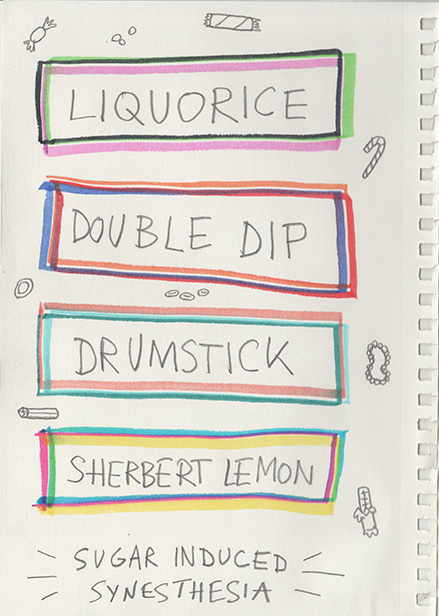 LIQUORICE
DOUBLE DIP
DRUMSTICK
SHERBERT LEMON
SUGAR INDUCED
SYNESTHESIA